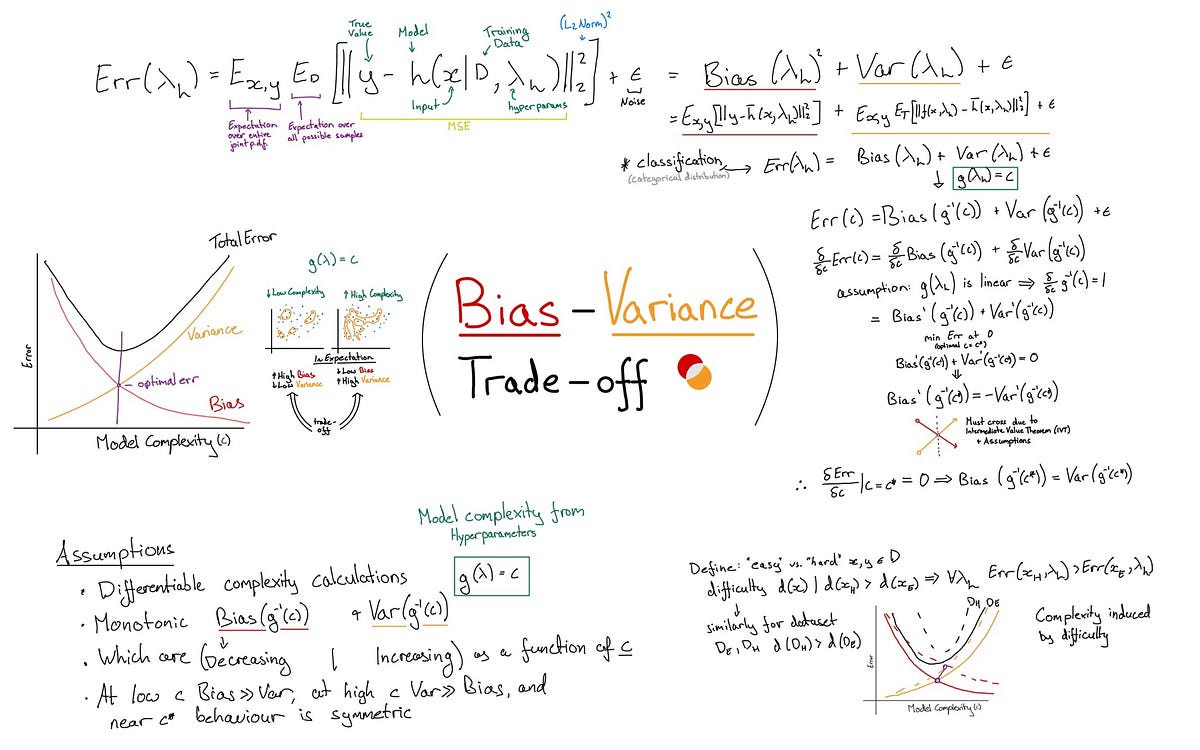 True Value
Model
Training Data
(L₂ Norm)²
Err(λₕ) = E_{x,y} E_D [‖y - h(x|D, λₕ)‖₂²] + ϵ = Bias(λₕ)² + Var(λₕ) + ϵ
Expectation over entire joint p.d.f.
Expectation over all possible samples
Input
hyperparams
MSE
Noise
= E_{x,y}[‖y - h̄(x,λₕ)‖₂²] + E_{x,y} E_T[‖f(x,λₕ) - h̄(x,λₕ)‖₂²] + ϵ
* classification → Err(λₕ) = Bias(λₕ) + Var(λₕ) + ϵ
(categorical distribution)
↓ g(λₕ) = c
Err(c) = Bias(g⁻¹(c)) + Var(g⁻¹(c)) + ϵ
δ/δc Err(c) = δ/δc Bias(g⁻¹(c)) + δ/δc Var(g⁻¹(c))
assumption: g(λₕ) is linear ⇒ δ/δc g⁻¹(c) = 1
= Bias'(g⁻¹(c)) + Var'(g⁻¹(c))
min Err at 0
(optimal c = c*)
Bias'(g⁻¹(c*)) + Var'(g⁻¹(c*)) = 0
⇓
Bias'(g⁻¹(c*)) = -Var'(g⁻¹(c*))
Must cross due to
Intermediate Value Theorem (IVT)
+ Assumptions
∴ δErr/δc |c=c* = 0 ⇒ Bias(g⁻¹(c*)) = Var(g⁻¹(c*))
Total Error
Variance
optimal err
Bias
Error
Model Complexity (c)
g(λ) = c
↓ Low Complexity
↑ High Complexity
In Expectation
↑ High Bias
↓ Low Variance
↓ Low Bias
↑ High Variance
trade-off
Bias - Variance
Trade-off
Model complexity from
Hyperparameters
g(λ) = c
Assumptions
· Differentiable complexity calculations
· Monotonic Bias(g⁻¹(c)) + Var(g⁻¹(c))
· Which are (Decreasing | Increasing) as a function of c
· At low c Bias ≫ Var, at high c Var ≫ Bias, and
near c* behaviour is symmetric
Define: "easy" vs. "hard" x,y ∈ D
difficulty d(x) | d(x_H) > d(x_E) ⇒ ∀λₕ Err(x_H, λₕ) > Err(x_E, λₕ)
↓
similarly for dataset
D_E, D_H d(D_H) > d(D_E)
D_H D_E
Error
Model Complexity (c)
Complexity induced
by difficulty